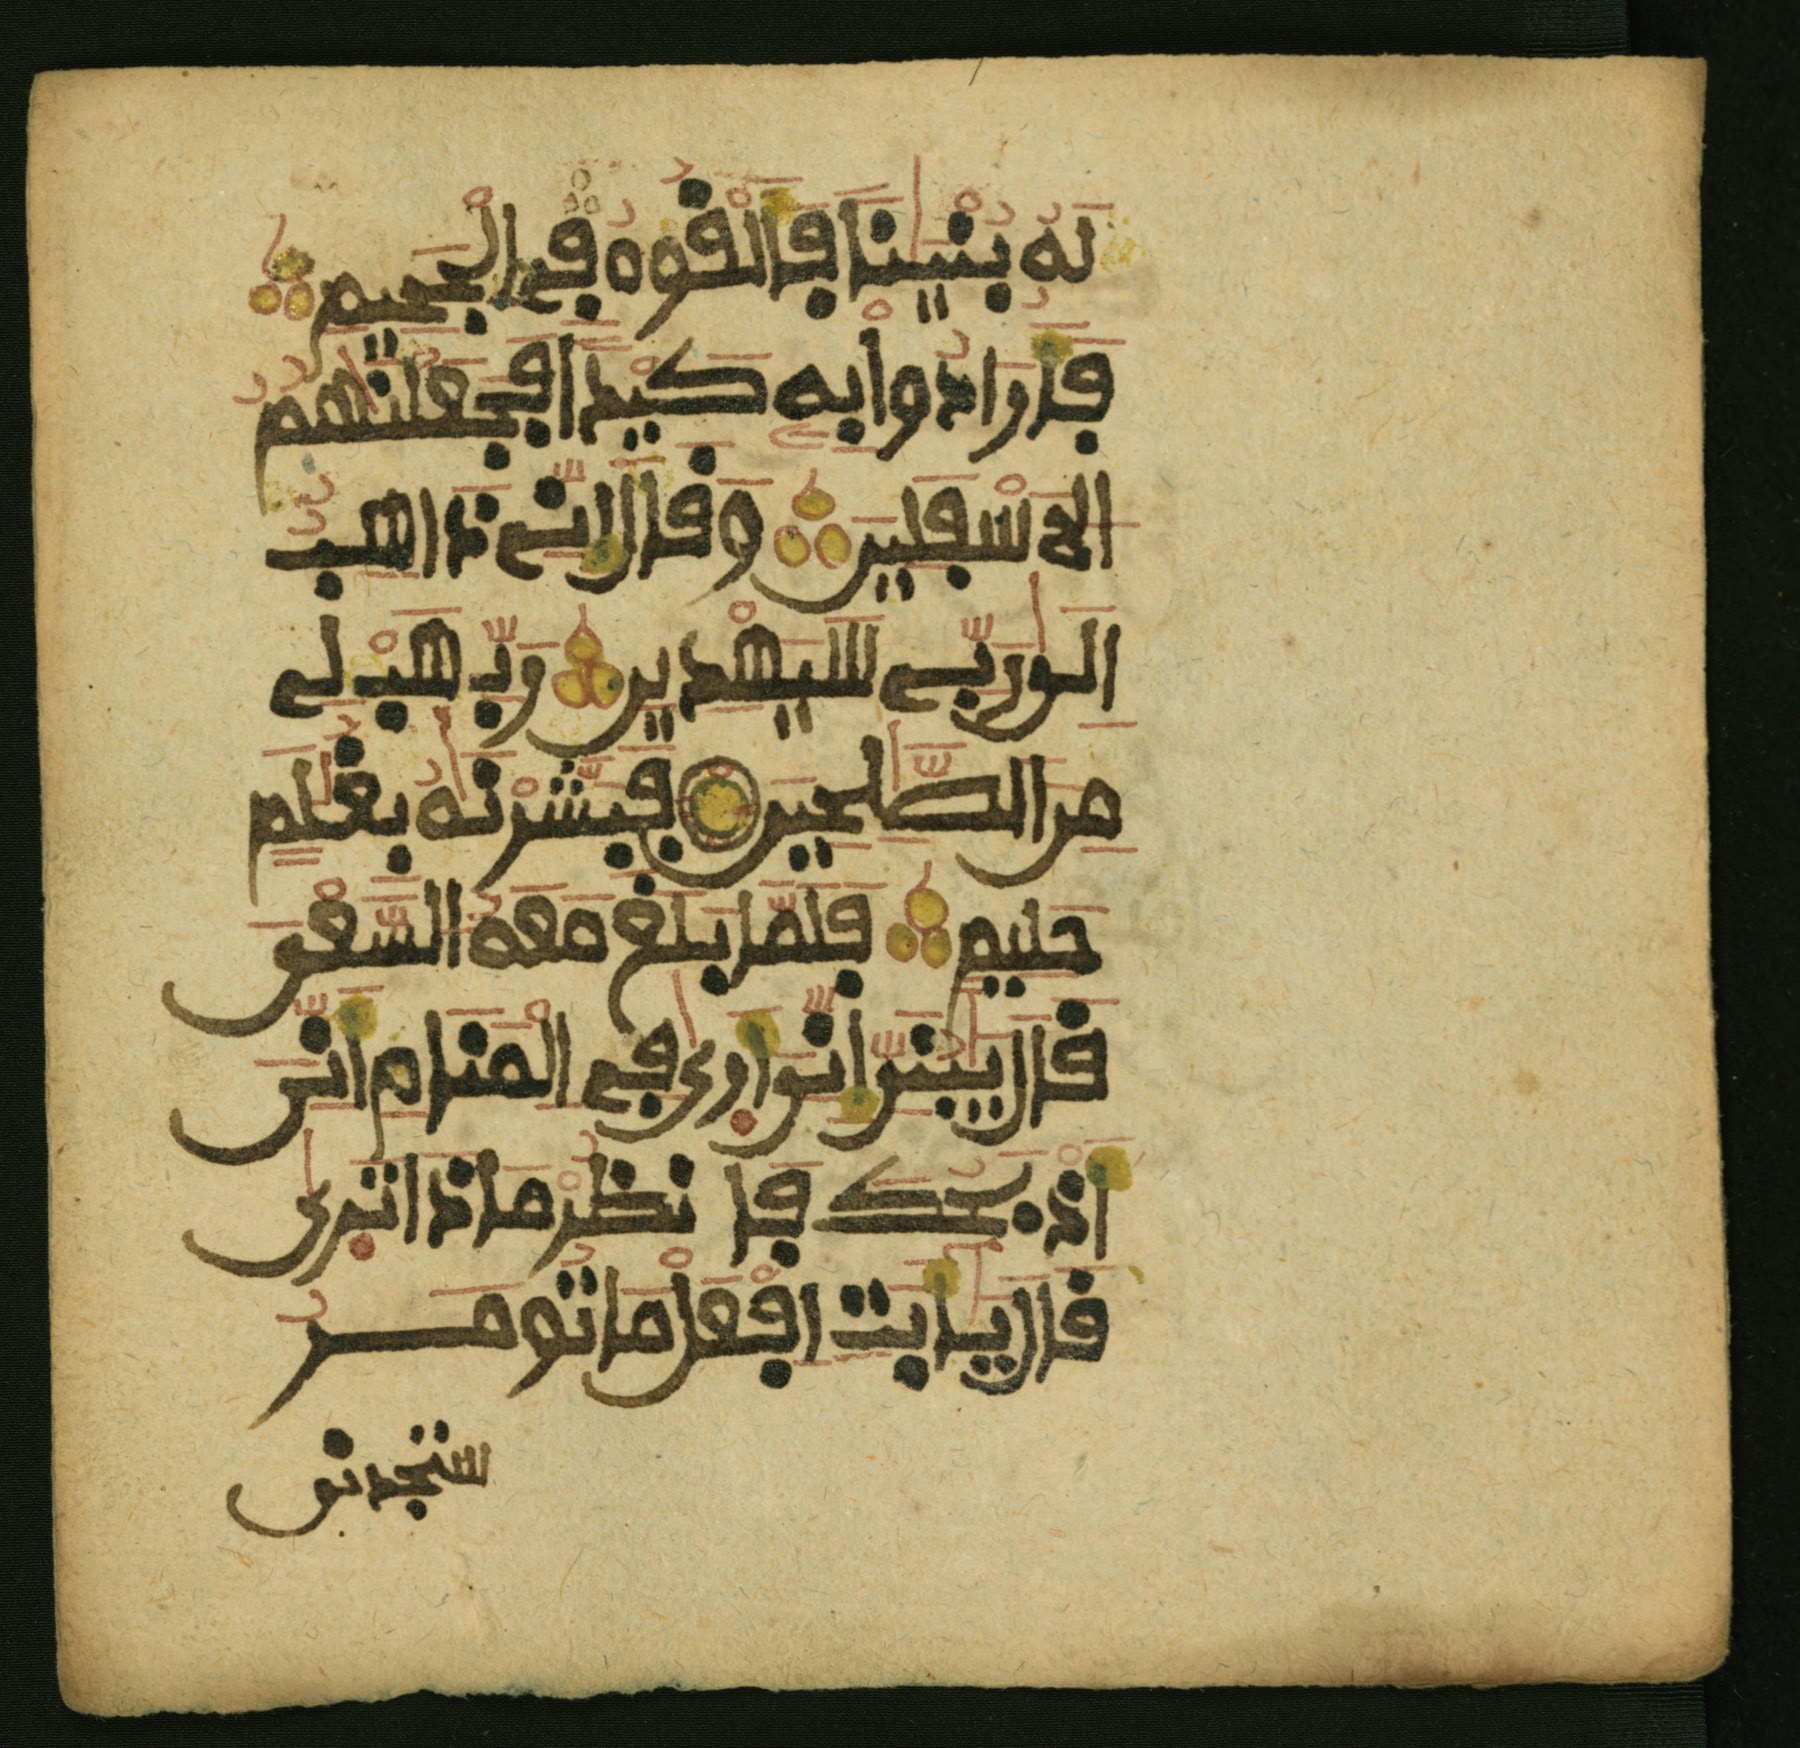 له بنينا فالقوه في الجحيم
فارادوا به كيدا فجعلنهم
الاسفلين وقال اني ذاهب
الى ربي سيهدين رب هب لي
من الصلحين فبشرنه بغلم
حليم فلما بلغ معه السعي
قال يبني اني ارى في المنام اني
اذبحك فانظر ماذا ترى
قال يابت افعل ما تومر
ستجدني